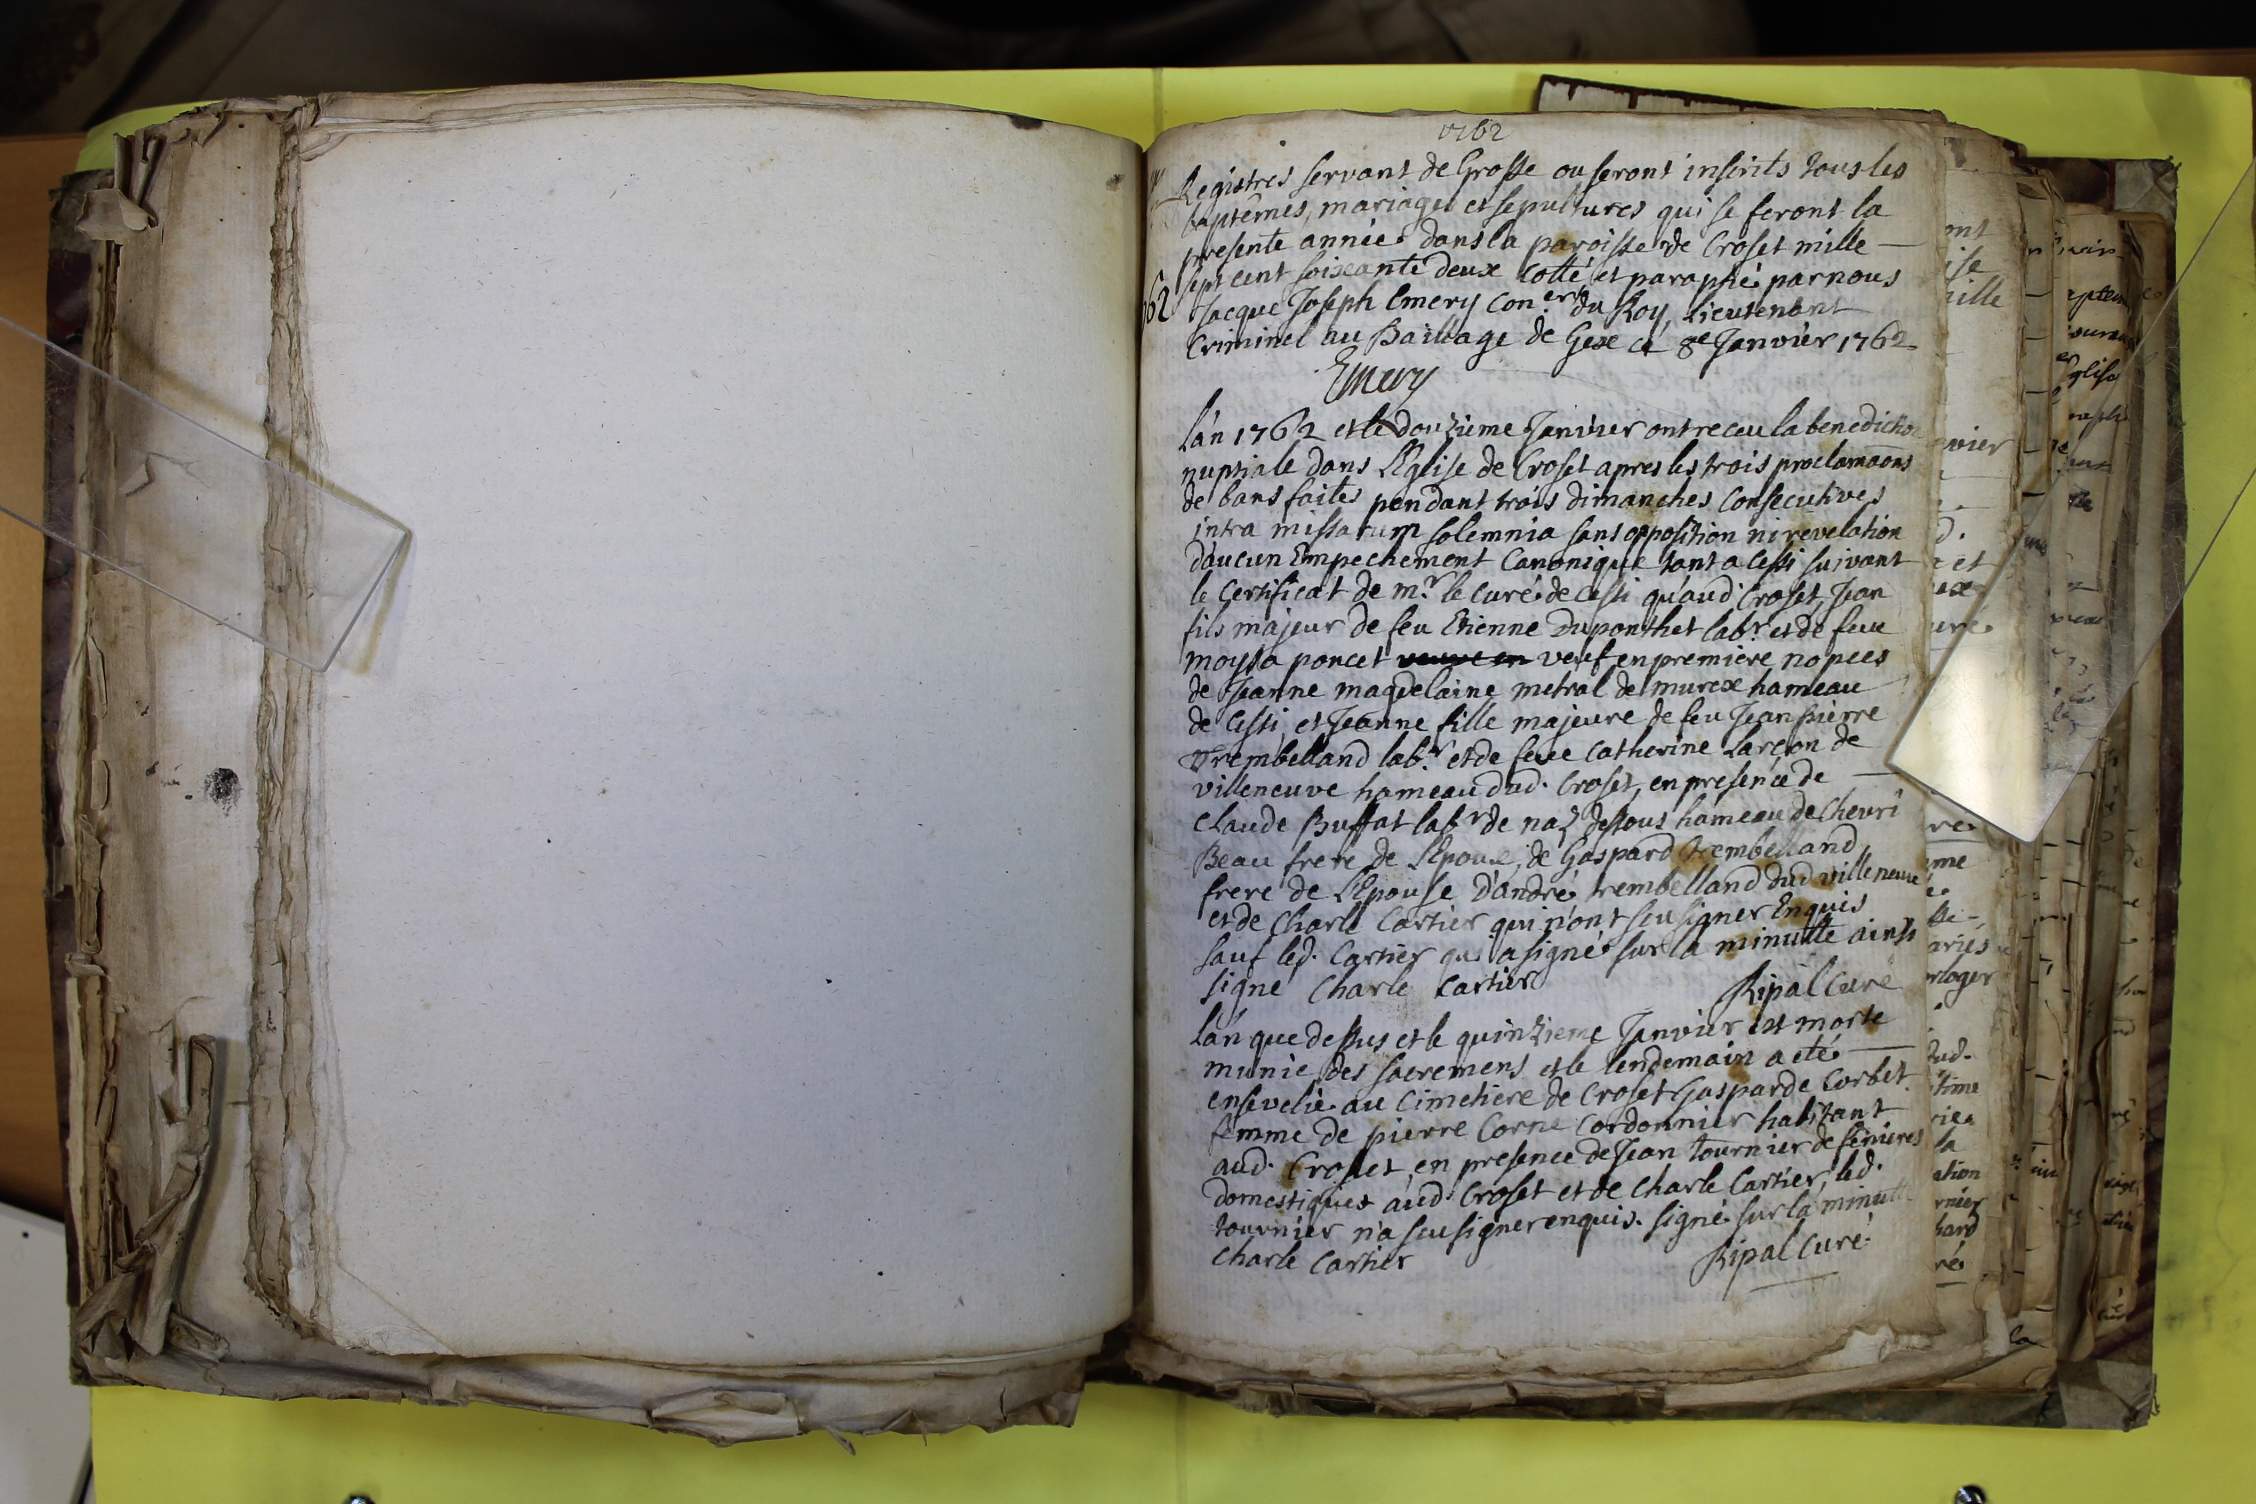 1762
Registres servant de Grosse ou seront inscrits tous les
baptêmes, mariages et sepultures qui se feront la
presente année dans la paroisse de Croset mille
sept cent soixante deux cotté et paraphé par nous
Jacque Joseph Emery con.er du Roy, Lieutenant
Criminel au Baillage de Gex ce 8e Janvier 1762
Emery
l'an 1762 et le douzieme Janvier ont receu la benediction
nuptiale dans l'Eglise de Croset apres les trois proclamaons
de bans faites pendant trois dimanches consecutives
intra missarum solemnia sans opposition ni revelation
d'aucun Empechement Canonique tant a Cessi suivant
le Certificat de m.r le curé de Cessi qu'aud Croset, Jean
fils majeur de feu Etienne Duponthet lab.r et de feue
moysa poncet veuve en veuf en premiere nopces
de Jeanne magdelaine metral de murex hameau
de Cessi, et Jeanne fille majeure de feu Jean pierre
Trembelland lab.r et de feue Catherine Larçon de
villeneuve hameau dud. Croset, en presence de
Claude Buffat lab.r de naz dessous hameau de Chevri
Beau frere de l'Epouse, de Gaspard trembelland,
frere de l'Epouse d'andré trembelland dud villeneuve
et de Charle Cartier qui n'ont seu signer Enquis
sauf led. Cartier qui a signé sur la minutte ainsi
signé Charle Cartier Ripal Curé
l'an que dessus et le quinzieme Janvier est morte
munie des sacremens et le lendemain a eté
ensevelie au cimetiere de Croset Gasparde Corbet
femme de pierre Corne Cordonnier habitant
aud. Croset, en presence de Jean tournier de fenieres
domestique aud. Croset et de Charle Cartier, led.
tournier n'a seu signer enquis. signé sur la minutte
Charle Cartier Ripal Curé